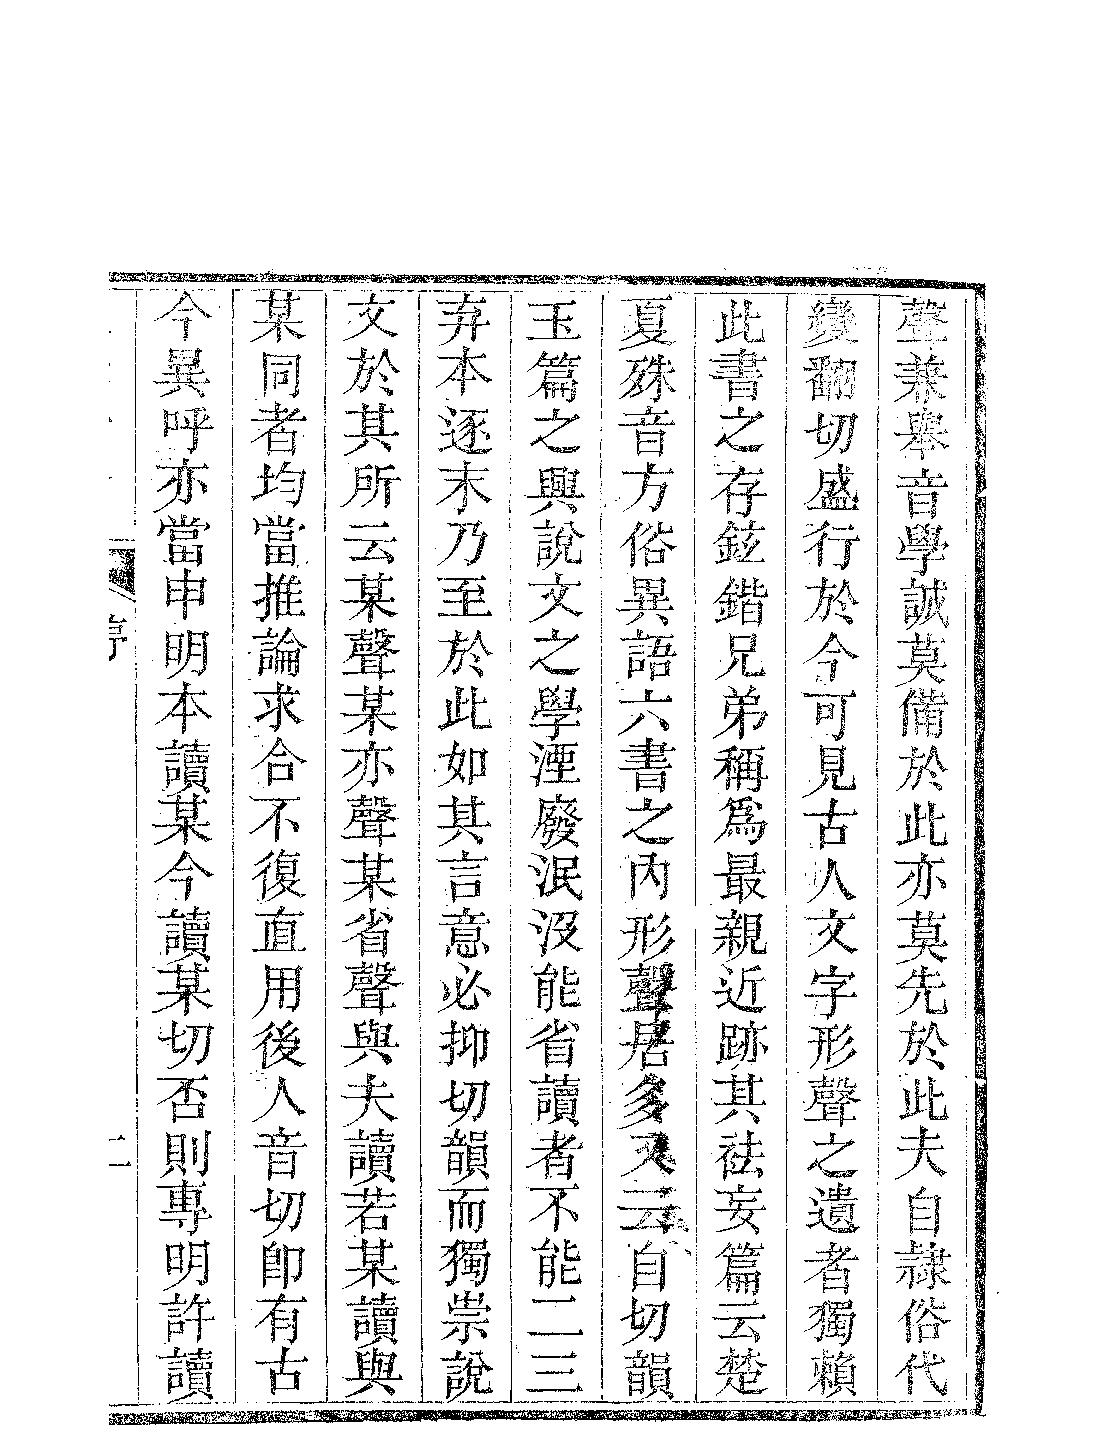 聲兼舉音學誠莫備於此亦莫先於此夫自隷俗代
變翻切盛行於今可見古人文字形聲之遺者獨賴
此書之存鉉鍇兄弟稱爲最親近跡其祛妄篇云楚
夏殊音方俗異語六書之內形聲居多又云自切韻
玉篇之興說文之學湮廢泯没能省讀者不能二三
弃本逐末乃至於此如其言意必抑切韻而獨崇說
文於其所云某聲某亦聲某省聲與夫讀若某讀與
某同者均當推論求合不復直用後人音切卽有古
今異呼亦當申明本讀某今讀某切否則專明許讀
序
二